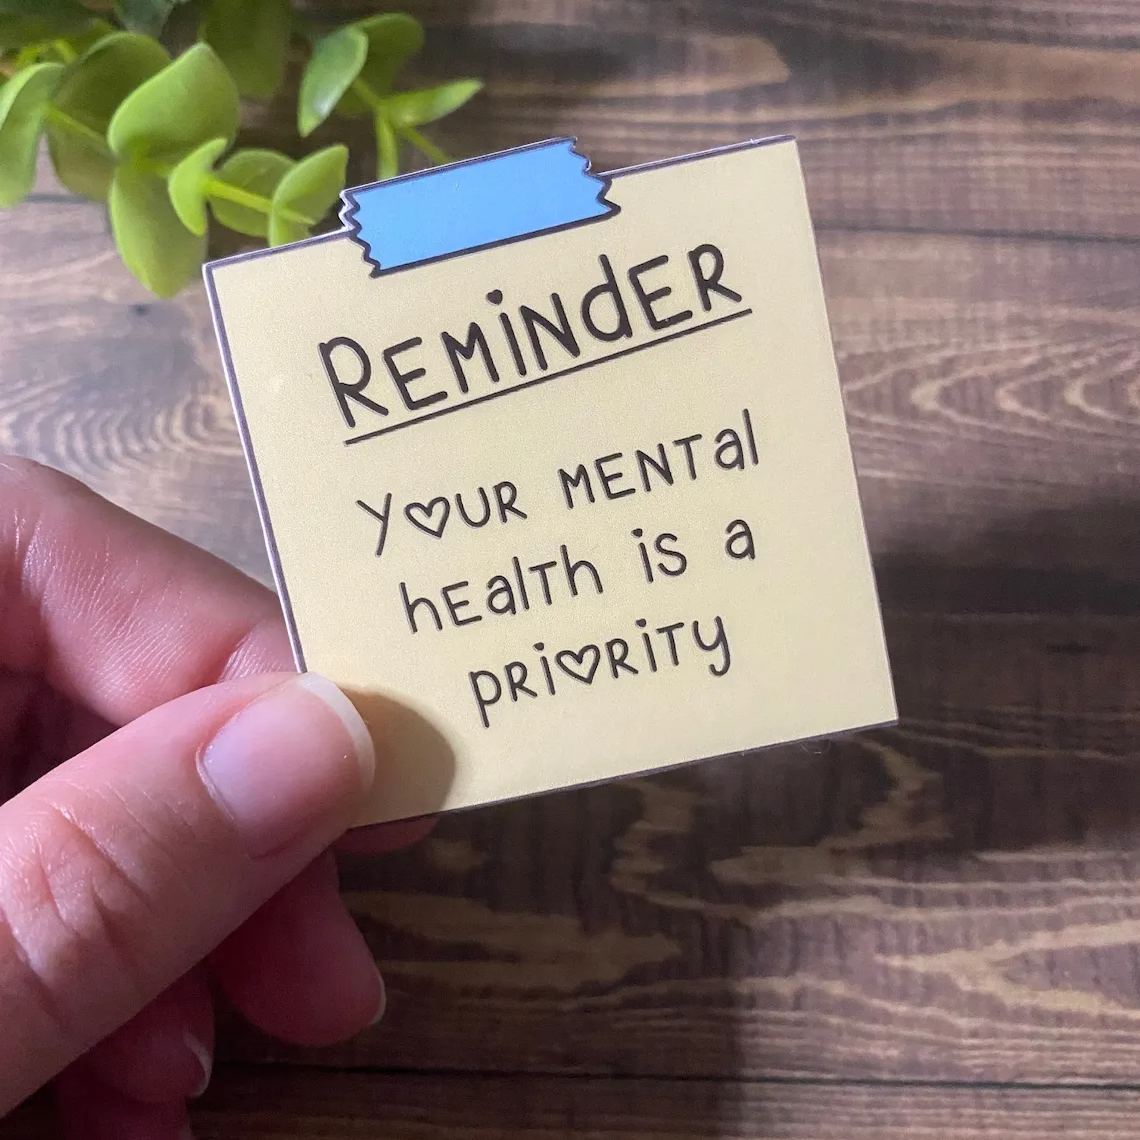 REMINdER
YOUR MENTal
hEalTh is a
pRiORiTy